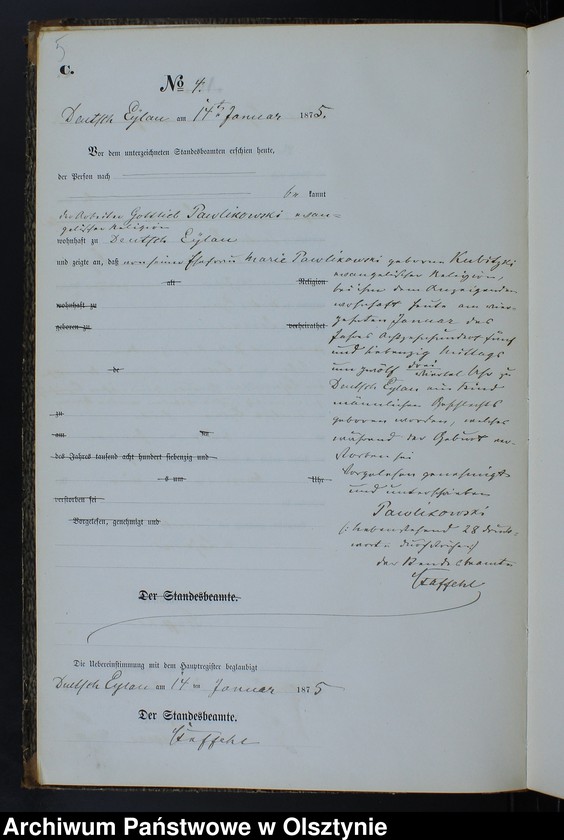 5
C.
No 4.
Deutsch Eylau am 14ten Januar 1875.
Vor dem unterzeichneten Standesbeamten erschien heute,
der Person nach
be kannt
der Arbeiter Gottlieb Pawlikowski evan-
gelischer Religion
wohnhaft zu Deutsch Eylau
und zeigte an, daß von seiner Ehefrau Marie Pawlikowski geborene Kubitzki
alt Religion evangelischer Religion,
bei ihm dem Anzeigenden
wohnhaft zu wohnhaft heute am vier-
geboren zu verheirathet zehnten Januar des
Jahres Achtzehnhundert fünf
und siebenzig Mittags
de um zwölf drei viertel Uhr zu
Deutsch Eylau ein Kind
männlichen Geschlechts
zu geboren worden, welches
am um während der Geburt ver-
des Jahres tausend acht hundert siebenzig und storben sei
s um Uhr Vorgelesen genehmigt
verstorben sei und unterschrieben
Vorgelesen, genehmigt und Pawlikowski
(: nebenstehend 28 Druck-
worte durchstrichen :)
der Standesbeamte
Der Standesbeamte.
Die Uebereinstimmung mit dem Hauptregister beglaubigt
Deutsch Eylau am 14 ten Januar 1875
Der Standesbeamte.
Archiwum Państwowe w Olsztynie